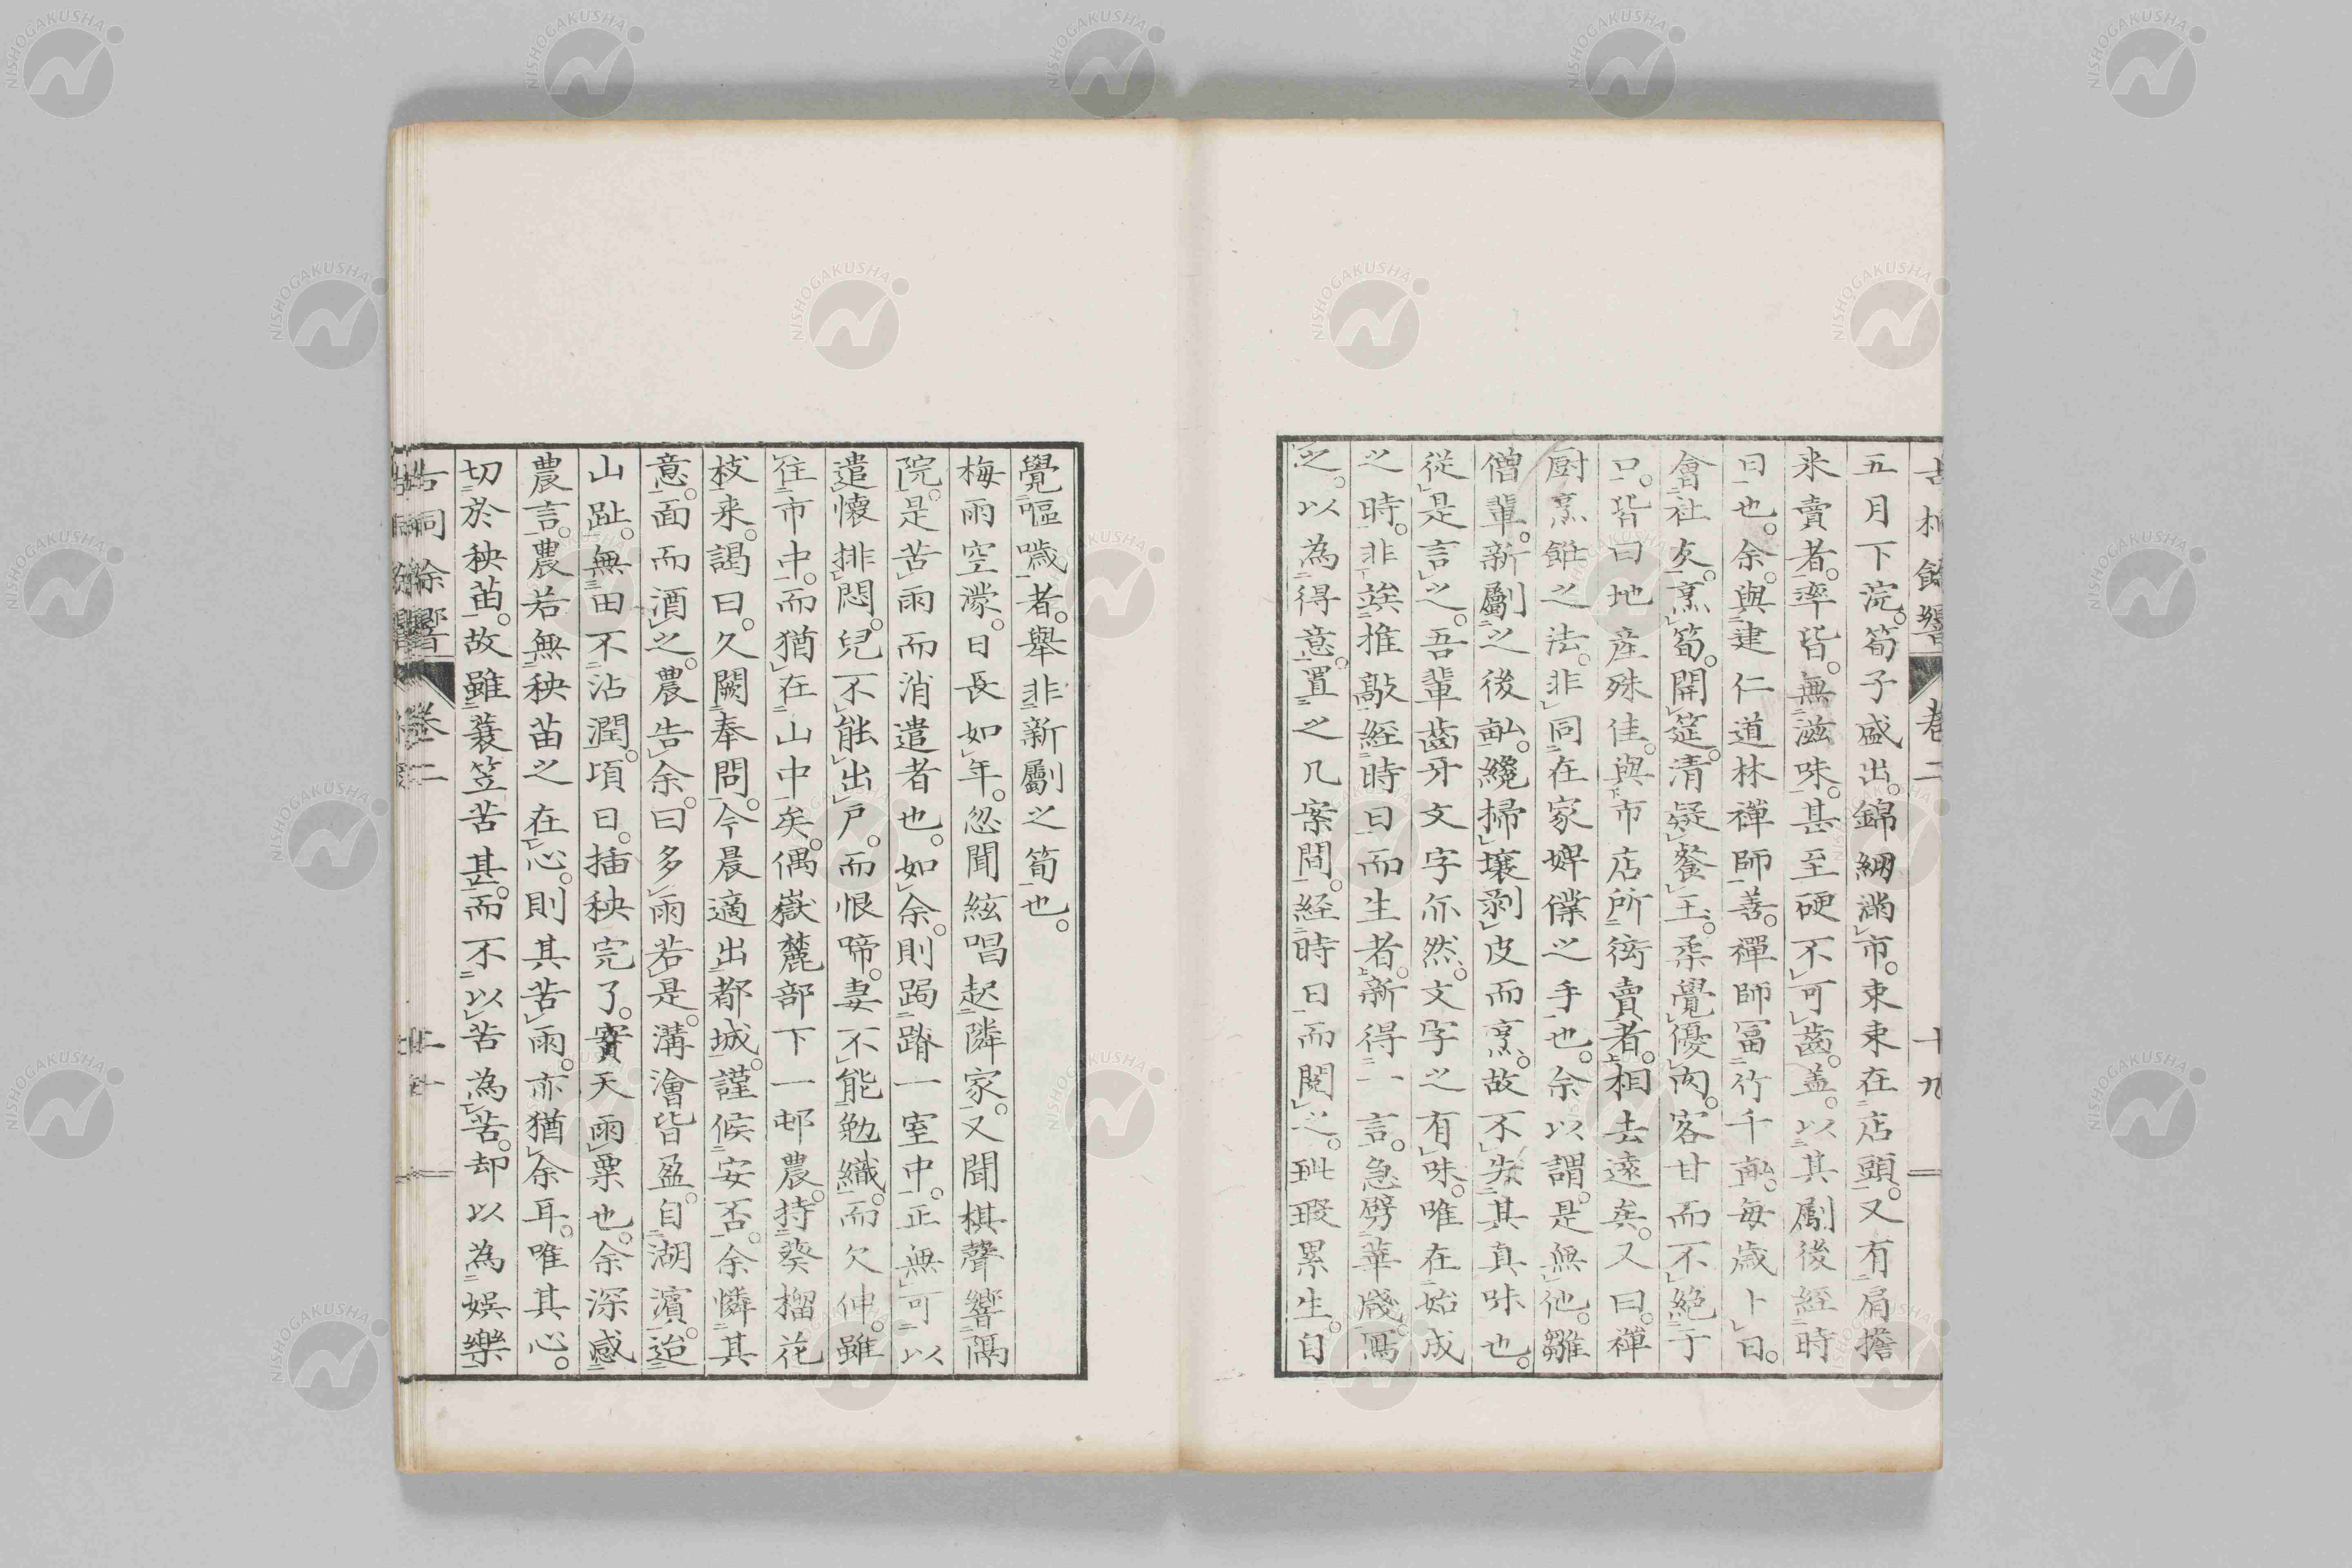 五月下浣。筍子盛出。錦綳滿市。束束在店頭。又有肩擔
来賣者。率皆。無滋味。甚至硬不可齒。盖。以其劚後經時
日也。余。與建仁道林禪師善。禪師冨竹千畝。每歲卜日。
會社友。烹筍。開筵。清疑餐玉。柔覺優肉。客甘而不絶于
口。皆曰地産殊佳。與市店所衒賣者。相去遠矣。又曰。禪
厨烹飪之法。非同在家婢僕之手也。余以謂。是無他。雛
僧輩。新劚之後畝。纔掃壌剥皮而烹。故不失其真味也。
従是言之。吾輩齒牙文字亦然。文字之有味。唯在始成
之時。非俟推敲經時日而生者。新得一言。急劈華牋寫
之。以為得意。置之几案間。經時日而閲之。玼瑕累生。自
覺嘔噦者。舉非新劚之筍也。
梅雨空濛。日長如年。忽聞絃唱起隣家。又聞棋聲響隔
院。是苦雨而消遣者也。如余。則跼蹐一室中。正無可以
遣懷排悶。兒不能出戸。而恨啼。妻不能勉織。而欠伸。雖
往市中。而猶在山中矣。偶嶽麓部下一邨農。持葵榴花
枝来。謁曰。久闕奉問。今晨適出都城。謹候安否。余憐其
意。面而酒之。農告余。曰多雨若是。溝澮皆盈。自湖濱。迨
山趾。無田不沾潤。頃日。插秧完了。實天雨粟也。余深感
農言。農若無秧苗之在心。則其苦雨。亦猶余耳。唯其心。
切於秧苗。故雖蓑笠苦甚。而不以苦為苦。却以為娯樂
NISHOGAKUSHA